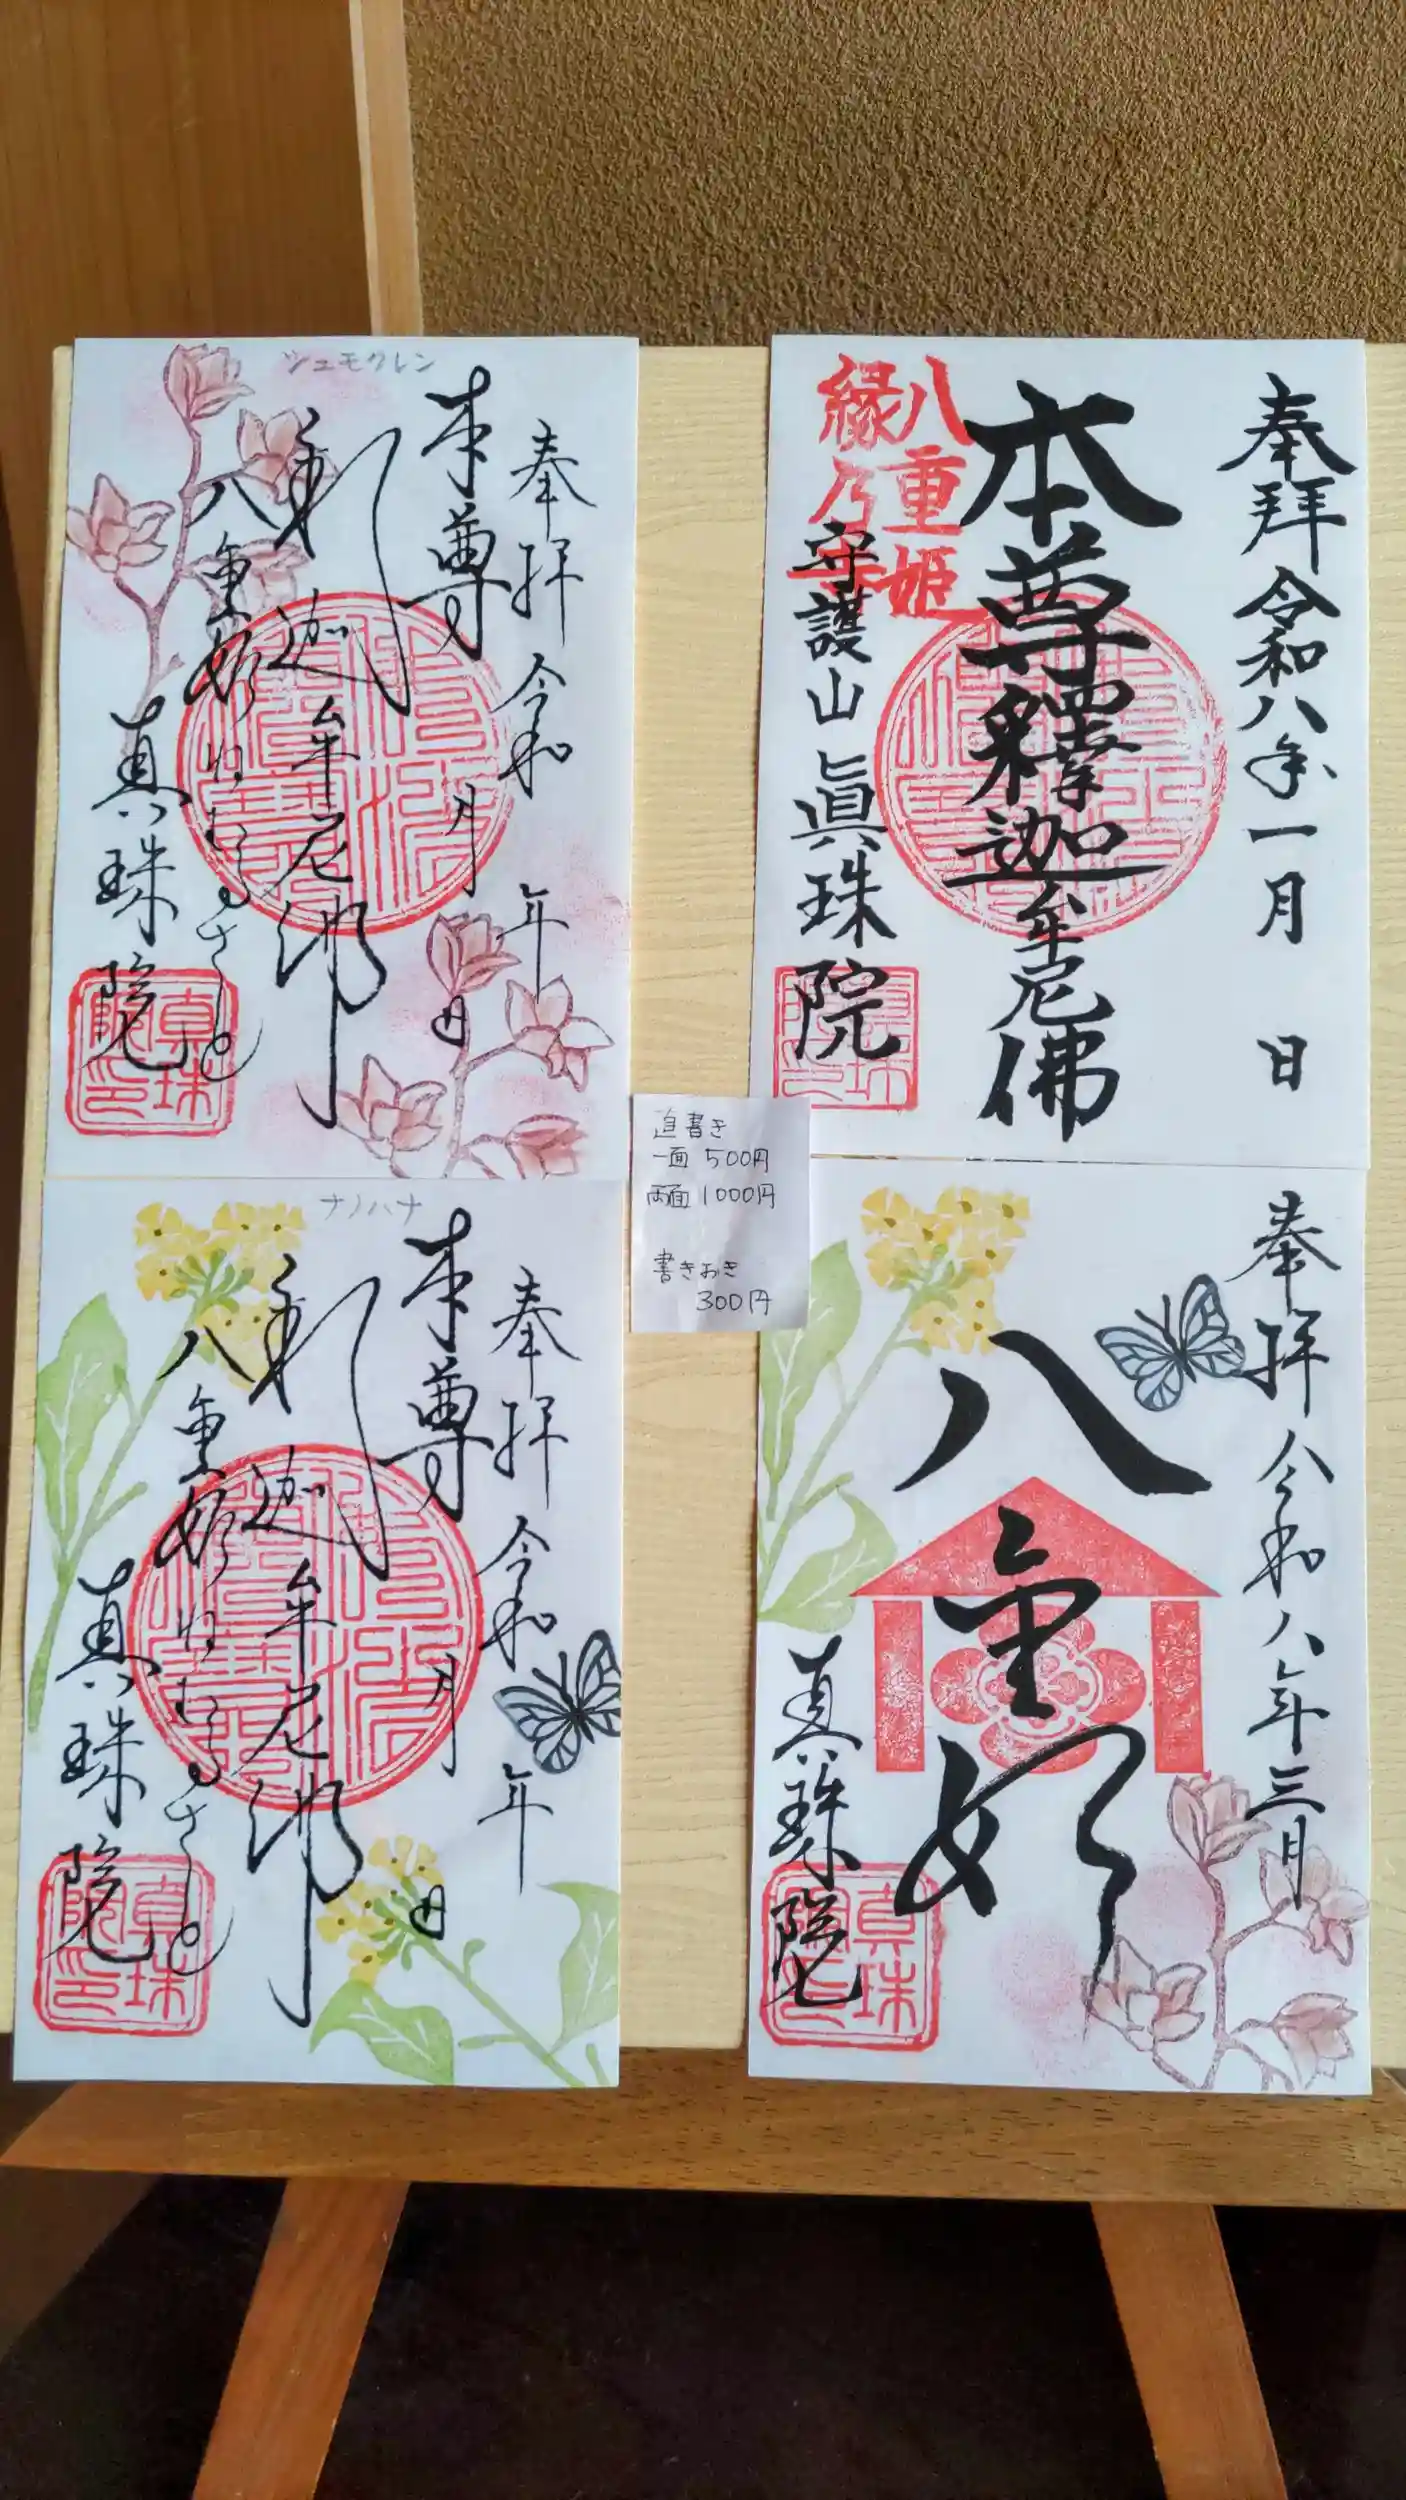 奉拝 令和八年一月 日
本尊釋迦牟尼佛
八重姫
縁乃寺
守護山 眞珠院
シュモクレン
奉拝 令和 年
月 日
本尊
釈迦牟尼佛
八重姫
真珠院
真珠院印
直書き
一面 500円
両面 1000円
書きおき
300円
奉拝 令和八年三月
八重姫
真珠院
真珠院印
ナノハナ
奉拝 令和 年
月 日
本尊
釈迦牟尼佛
八重姫
真珠院
真珠院印